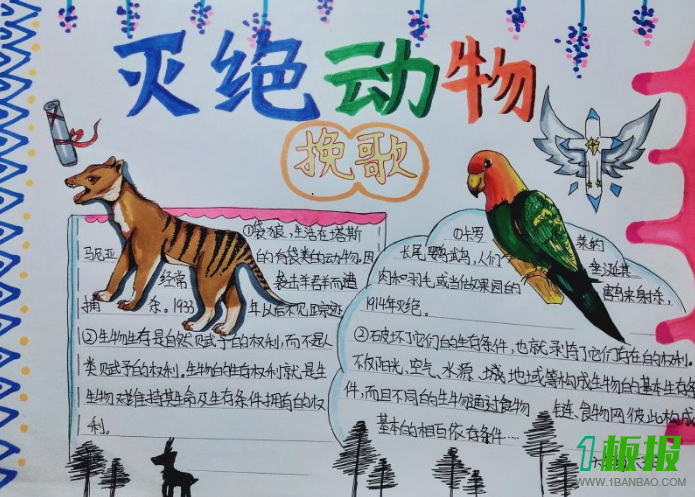 灭绝动物
挽歌
①袋狼,生活在塔斯
马尼亚 的有袋类的动物,因
经常 袭击羊群而遭
捕 杀。1933 年以后不见踪迹
②生物生存是自然赋予的权利,而不是人
类赋予的权利。生物的生存权利就是生
生物对维持其生命及生存条件拥有的权
利。
①卡罗 莱纳
长尾鹦鹉,人们
肉和羽毛,或当做果园的 害鸟来射杀,
1914年灭绝。
②破坏了它们的生存条件,也就录夺了它们存在的权利。
不仅阳光、空气、水源、土或、地域等构成生物的基本生存条
件,而且不同的生物通过食物 链、食物网彼此构成
基本的相互依存条件....
1板报
WWW.1BANBAO.COM